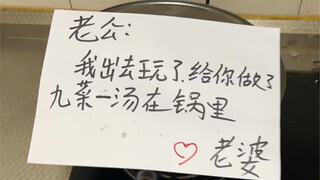 老公:
我出去玩了,给你做了
九菜一汤在锅里
老婆